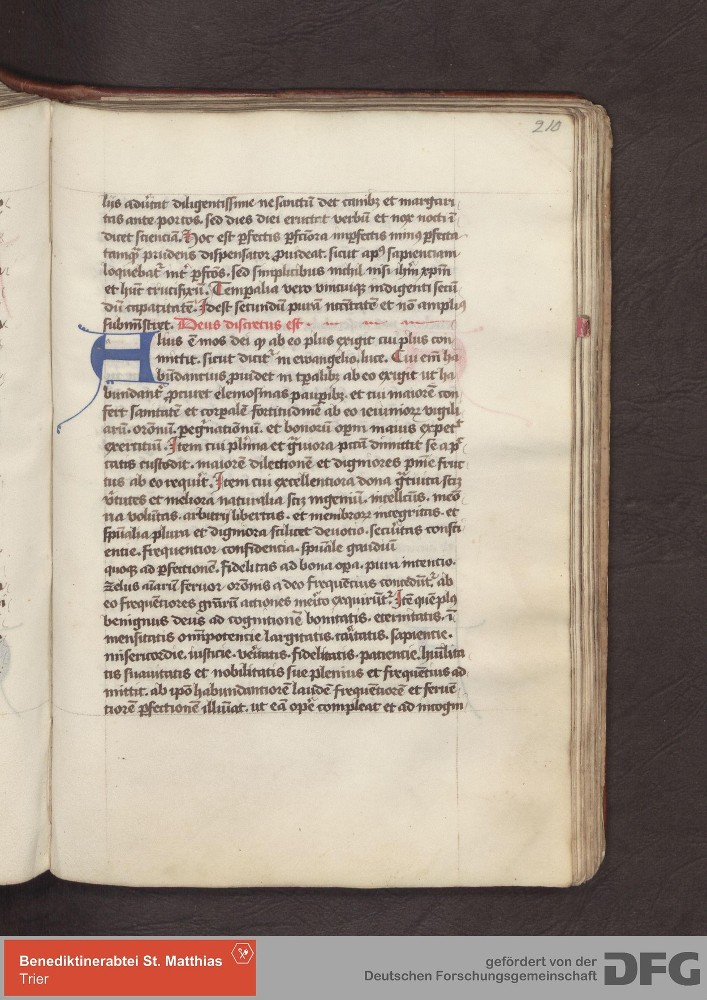 210
liis aduertit diligentissime ne sanctū det canibꝫ et margari
tas ante porcos. sed dies diei eructet verbū et nox nocti ī
dicet scienciam. Hoc est ꝑfectis ꝑfectiora imꝑfectis minus ꝑfecta
tamqᷓ prudens dispensator ꝓuideat. sicut apꝰ sapienciam
loquebatᷣ int̾ ꝑfc̄os. sed simplicibus nichil nisi ihm̄ xpm̄
et hūc crucifixū. Temporalia vero vnicuiqꝫ indigenti secū
dū capacitatē. Idest secundū purā nēcitatē et nō ampliꝰ
subministret. Deus discretus est
Alius ē mos dei qꝫ ab eo plus exigit cui plus con
mittit. sicut dicitᷣ in ewangelio. luce. Cui em̄ ha
būdancius ꝓuidet in tꝑalibꝫ ab eo exigit ut ha
bundantᷣ ꝓcuret elemosinas pauꝑibꝫ. et cui maiorē con
fert sanitatē et corꝑalē fortitudinē ab eo ieiuniorꝝ vigili
arū. orōnū. ꝑegⁱnationū. et bonorū oꝑm maius expetᷣ
exercitiū. Item cui plīma et gᷓuiora pctā dimittit se a pctīs
catis custodit. maiorē dilectionē et digniores pn̄ie fruc
tus ab eo requirit. Item cui excellentiora dona gᷓtuita scꝫ
v̾tutes et meliora naturalia scꝫ ingeniū. intellcūs. meō
ria voluntas. arbitrij libertas. et membrorꝝ integritas. et
spūalia plura et digniora scilicet deuotio. securitas consci
entie. frequentior confidencia. spūale gaudiū
quoqꝫ ad ꝑfectionē. fidelitas ad bona oꝑa. pura intencio.
zelus aīarū feruor orōnis a deo frequēcius conceduntᷣ. ab
eo frequēciores grārū actiones merito exquirūtᷣ. Itē quē plꝰ
benignus deus ad cognitionē bonitatis. eternitatis. ī
mensitatis omīpotencie largitatis. caritatis. sapiencie.
misericordie. iusticie. v̾itatis. fidelitatis. patiencie. hūilita
tis suauitatis et nobilitatis sue plenius et frequēcius ad
mittit. ab ipō habundantiorē laudē frequēciorē et feruē
ciorē ꝑfectionē illiīat. ut eā oꝑe compleat et ad incogni
Benediktinerabtei St. Matthias
Trier
gefördert von der
Deutschen Forschungsgemeinschaft
DFG